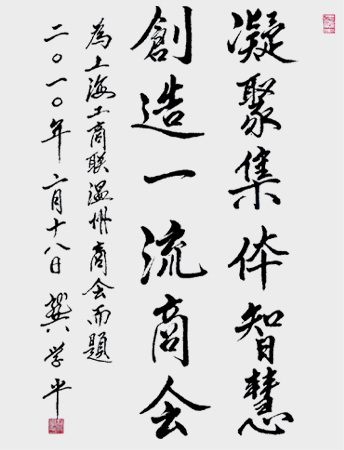 凝聚集体智慧
創造一流商会
為上海工商联温州商会而題
二〇一〇年六月十八日 龔学平